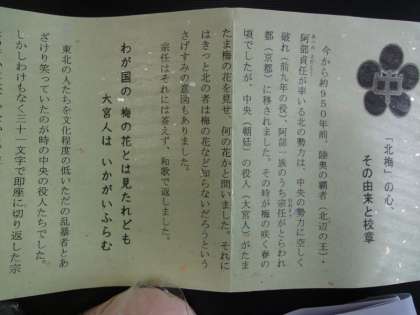 中
「北梅」の心、
その由来と校章
今から約950年前、陸奥の覇者(北辺の王)・
阿部貞任が率いる北の勢力は、中央の勢力に空しく
破れ(前九年の役)、阿部一族のうち宗任がとらわれ
都(京都)に移されました。その時が梅の咲く春の
頃でしたが、中央(朝廷)の役人(大宮人)がたま
たま梅の花を見せ、何の花かと問いました。それに
はきっと北の者は梅の花など知らないだろうという
さげすみの意図もありました。
宗任はそれには答えず、和歌で返しました。
わが国の 梅の花とは見たれども
大宮人は いかがいふらむ
東北の人たちを文化程度の低いただの乱暴者とあ
ざけり笑っていたのが時の中央の役人たちでした。
しかしわけもなく三十一文字で即座に切り返した宗